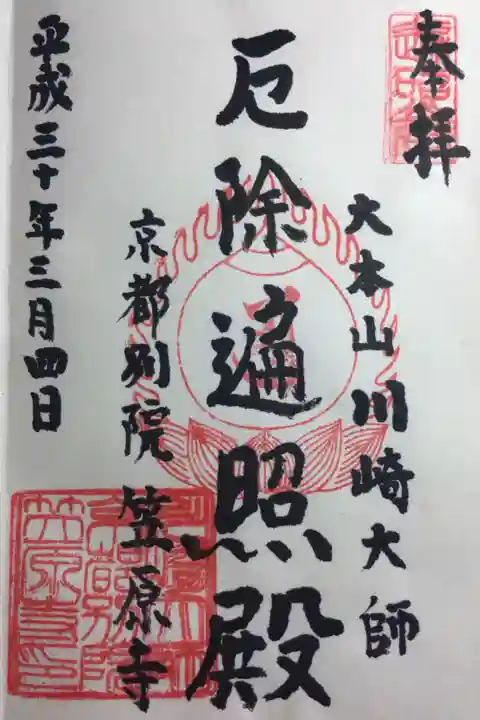 奉拝
大本山川崎大師
厄除遍照殿
京都別院笠原寺
平成三十年三月四日